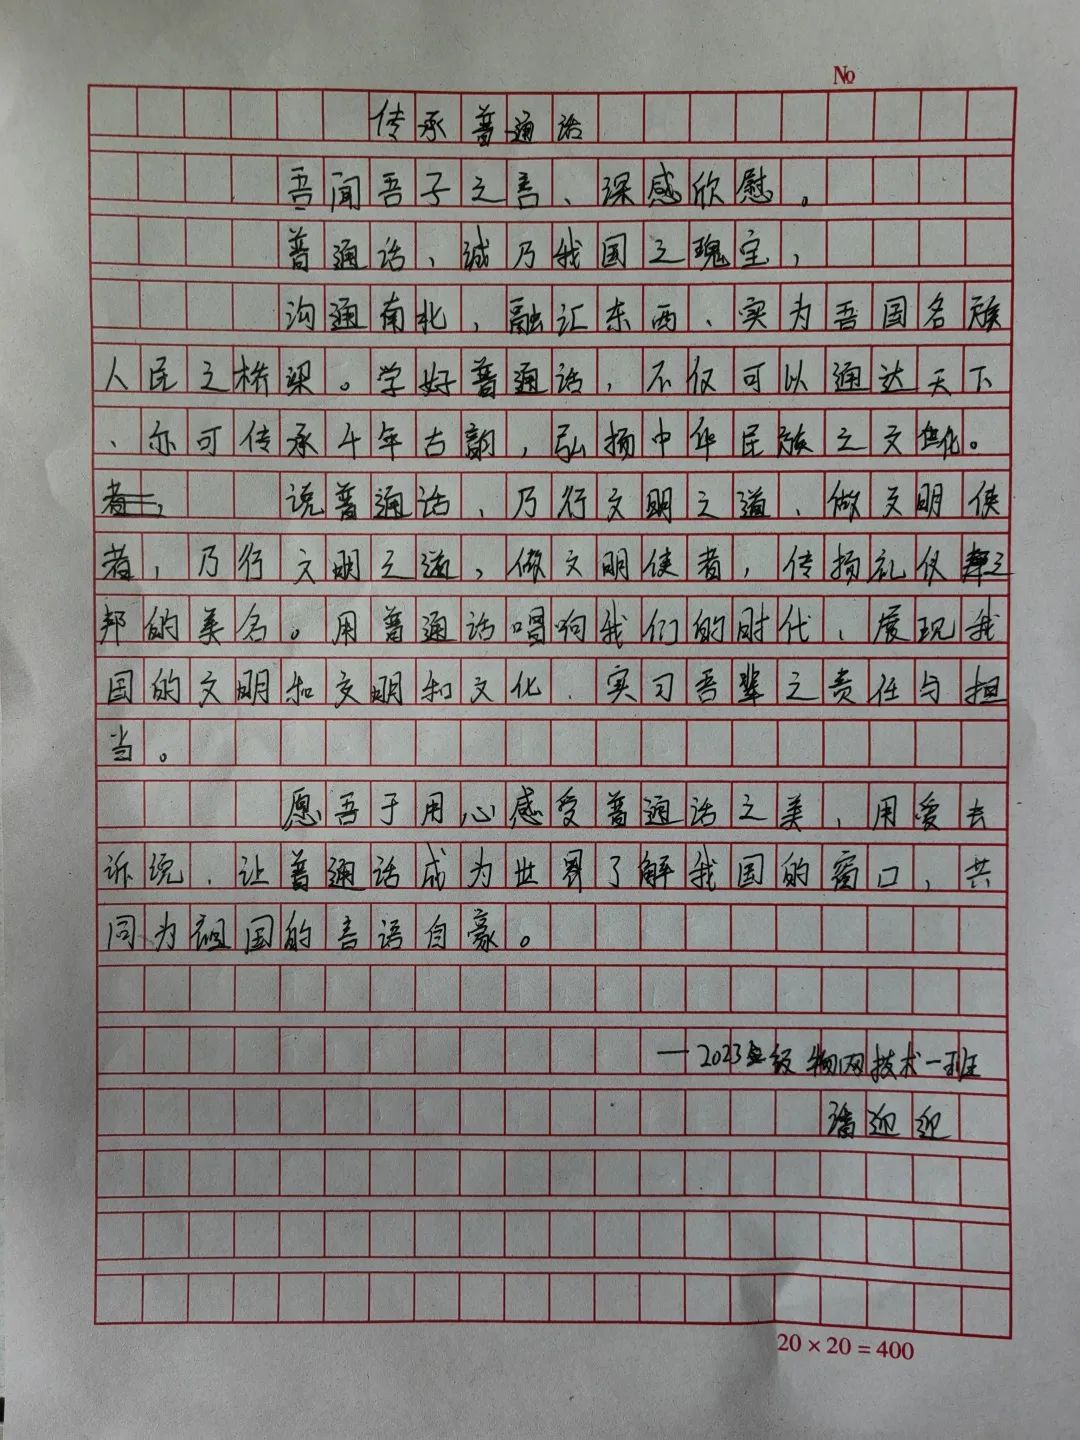 №
传承普通话
吾闻吾子之言、深感欣慰。
普通话、诚乃我国之瑰宝，
沟通南北，融汇东西、实为吾国各族
人民之桥梁。学好普通话，不仅可以通达天下
、亦可传承千年古韵，弘扬中华民族之文化。
说普通话、乃行文明之道、做文明使
者，乃行文明之道，做文明使者，传扬礼仪之
邦的美名。用普通话唱响我们的时代、展现我
国的文明和文明和文化、实习吾辈之责任与担
当。
愿吾于用心感受普通话之美，用爱去
诉说、让普通话成为世界了解我国的窗口，共
同为祖国的言语自豪。
一2023级物网技术一班
迎迎
20×20=400